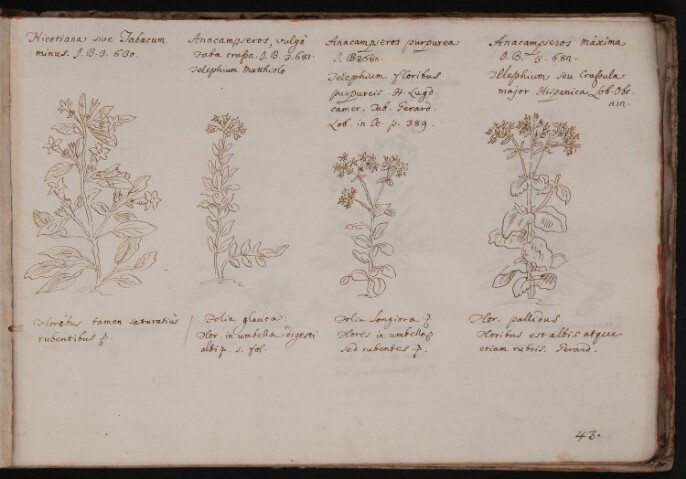 Nicotiana sive Tabacum
minus. J. B. 3. 630.
Anacampseros, vulgò
faba crassa. J. B. 3. 681.
Telephium Matthiolo
Anacampseros purpurea
J. B. 3. 682.
Telephium floribus
purpureis H. Lugd.
camer. Tab. Gerard.
Lob. in Ic. p. 389.
Anacampseros máxima
J. B. 3. 682.
Telephium seu Crassula
major Hispanica Lob. Obs.
Floribus tamen saturatiùs
rubentibus
Folia glauca.
Flor. in umbella digesti
albi s. fol.
Folia longiora
Flores in umbella
sed rubentes
Flor. pallidus
Floribus est albis atque
etiam rubris. Gerard.
43.